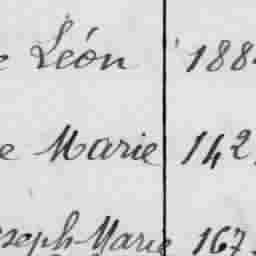 e Léon 188
e Marie 142
oseph-Marie 167